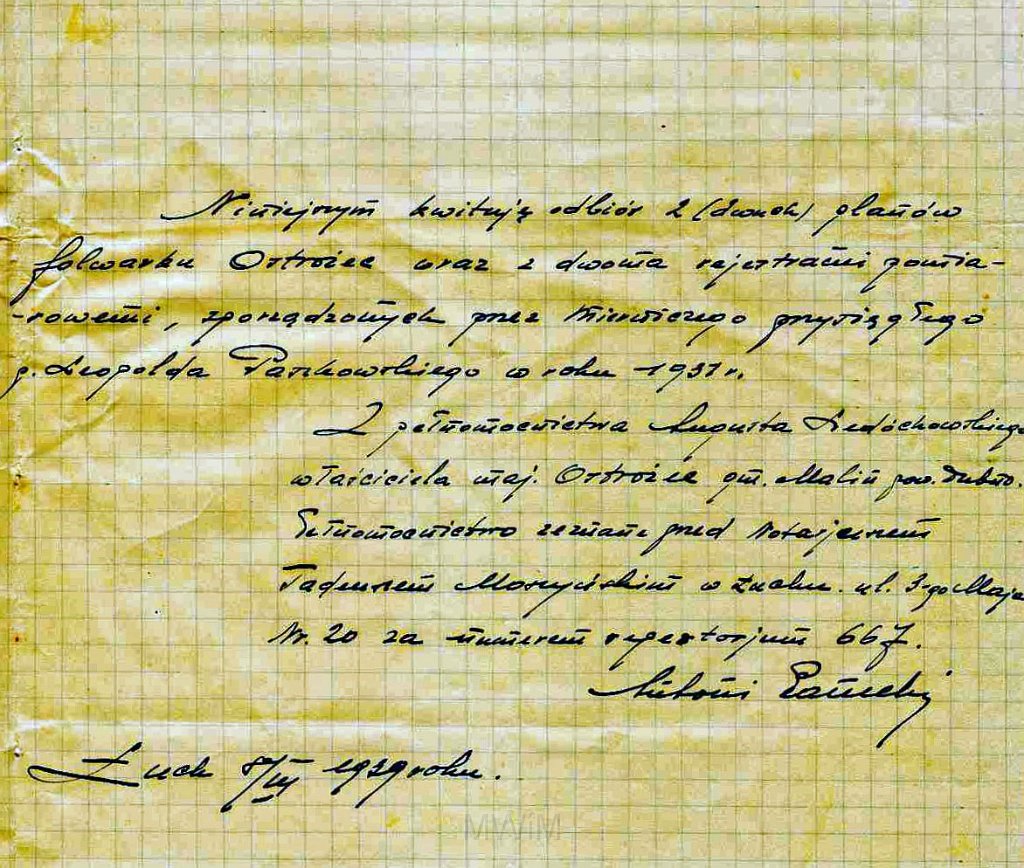 Niniejszym kwituję odbiór 2 (dwuch) planów
folwarku Ostrożec wraz z dwoma rejestrami pomia-
-rowemi, sporządzonych przez Mierniczego przysięgłego
p. Leopolda Paszkowskiego w roku 1931 r.
Z pełnomocnictwa Augusta Ledóchowskiego
właściciela maj. Ostrożec gm. Malin pow. Dubno.
Pełnomocnictwo zeznane przed Notarjuszem
Tadeuszem w Łucku. ul. 3-go Maja
Nr. 20 za numerem repertorjum 667.
Antoni
Łuck 1939 roku.
MWiM